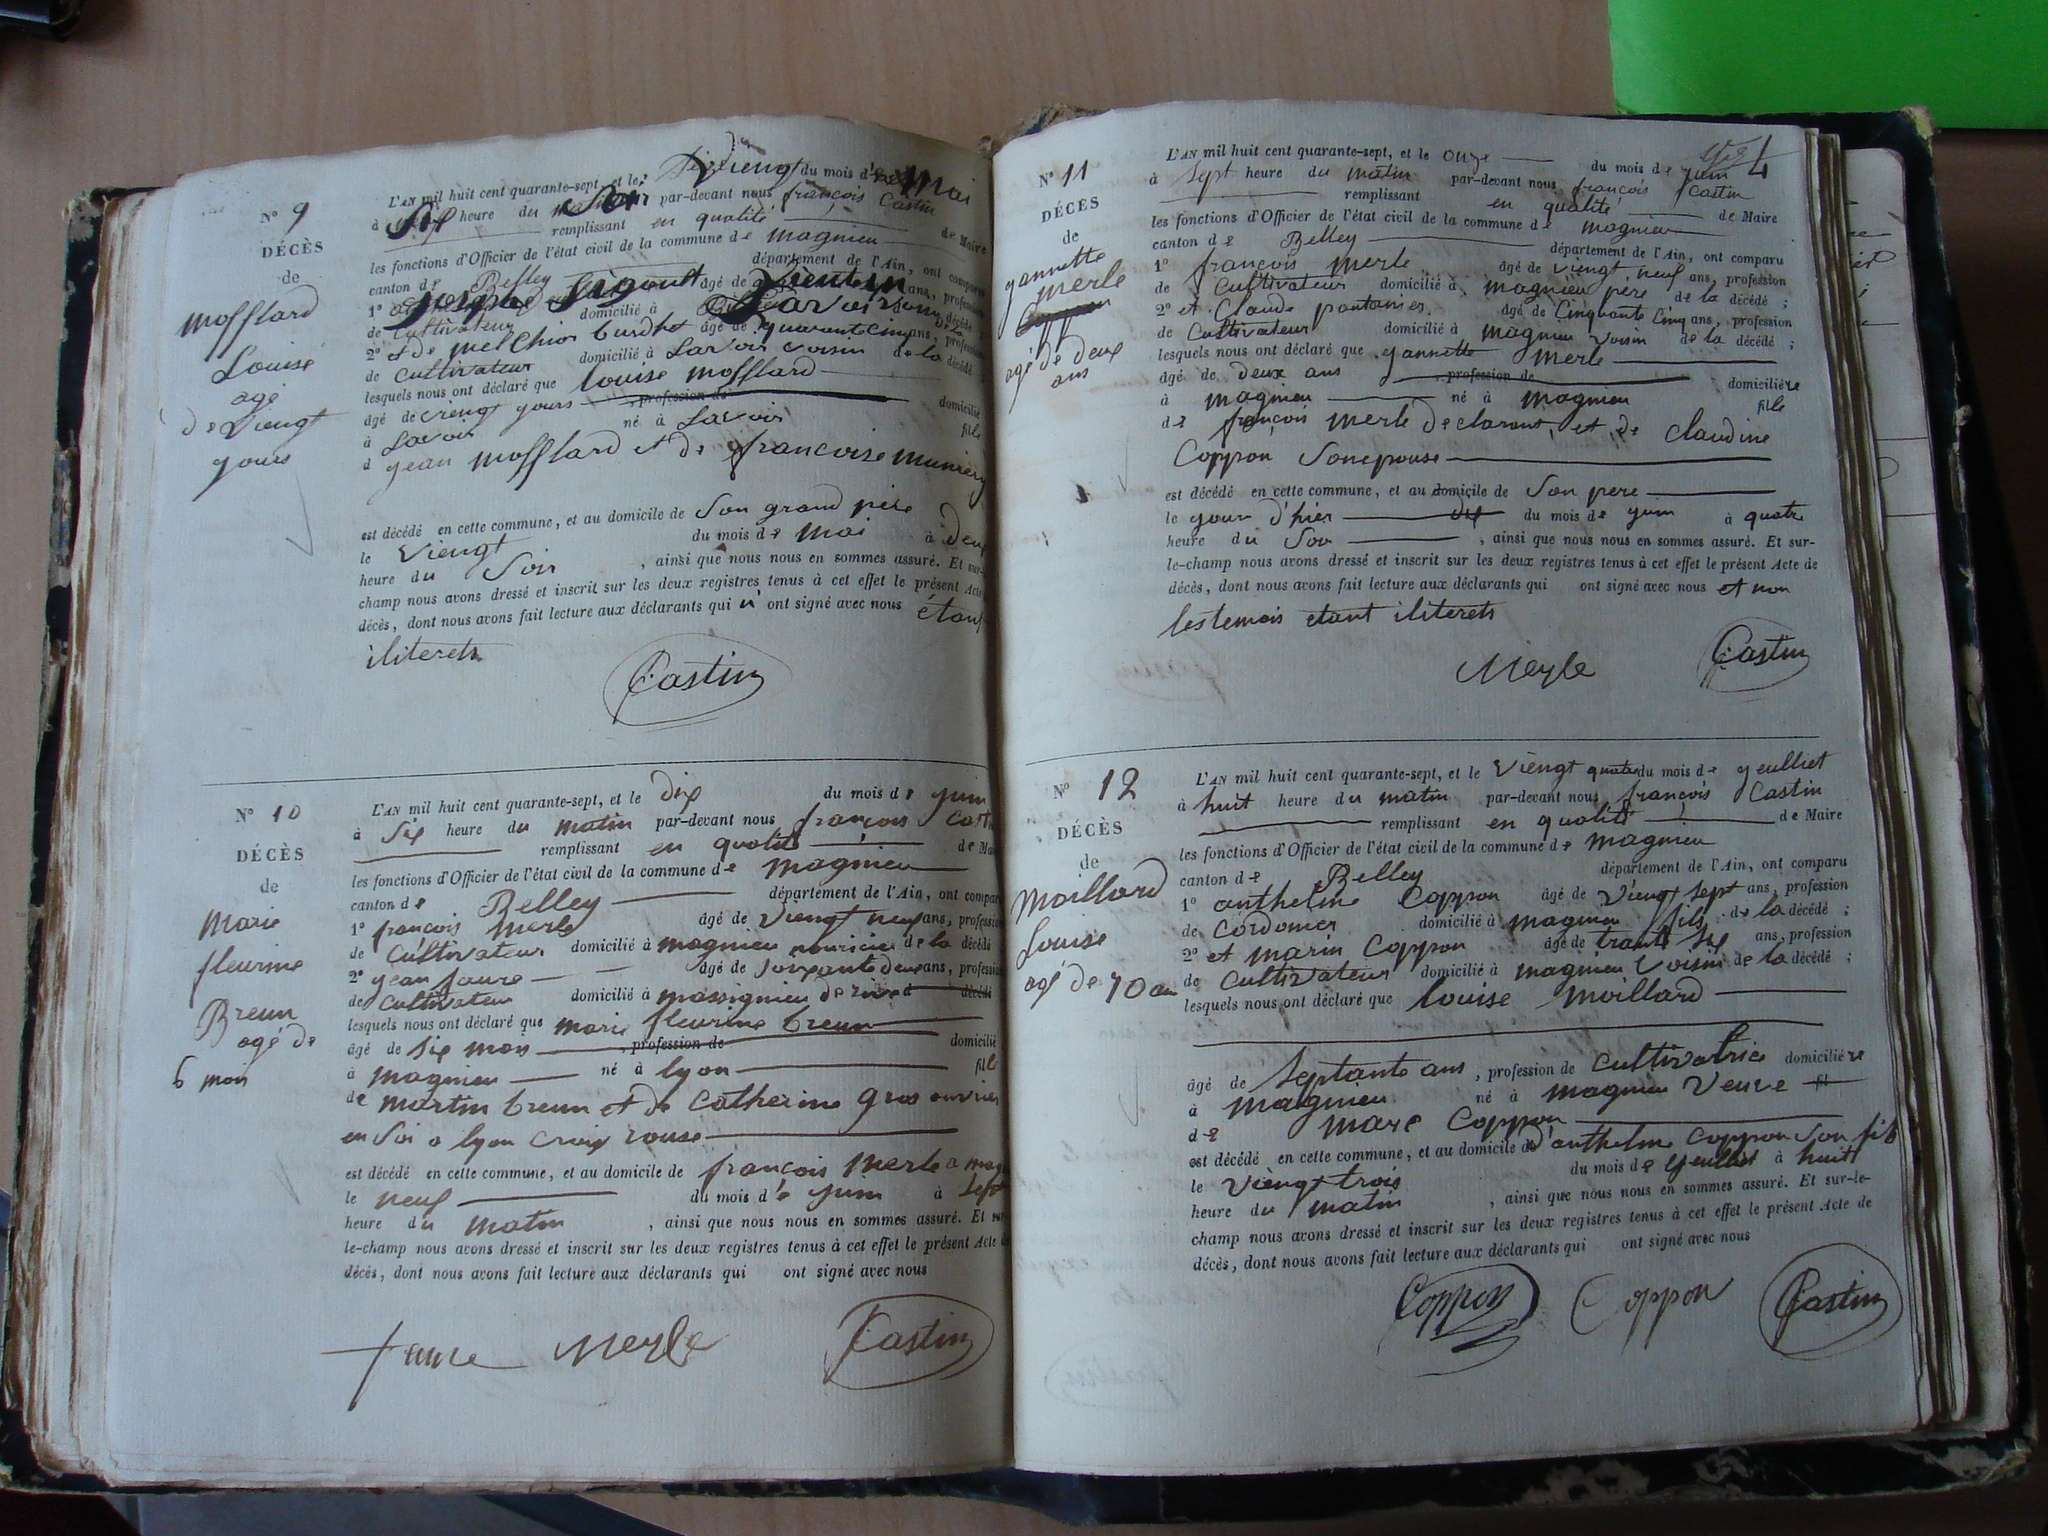 N° 9
DÉCÈS
de
Mofflard
Louise
agé
de viengt
yours
L'AN mil huit cent quarante-sept, et le viengt du mois de mai
à Six heure du Soir par-devant nous françois Castin
remplissant en qualité de Maire
les fonctions d'Officier de l'état civil de la commune de magnieu
canton de Belley département de l'Ain, ont comparu
1° âgé de ans, profession
de Cultivateur domicilié à Lavoir décédé
2° et de melchior burdet âgé de quarante cinq ans, profession
de cultivateur domicilié à Lavoir voisin de la décédé
lesquels nous ont déclaré que louise mofflard
âgé de viengt yours , profession de domicilié
à Lavoir né à Lavoir fille
d yean mofflard et de françoise munier
est décédé en cette commune, et au domicile de Son grand père
le viengt du mois de mai à deux
heure du Soir , ainsi que nous nous en sommes assuré. Et sur-
champ nous avons dressé et inscrit sur les deux registres tenus à cet effet le présent Acte
décès, dont nous avons fait lecture aux déclarants qui n' ont signé avec nous étant
iliterets
Castin
N° 10
DÉCÈS
de
marie
fleurine
Breun
agé de
6 moi
L'AN mil huit cent quarante-sept, et le dix du mois de yuin
à Six heure du matin par-devant nous françois Castin
remplissant en qualité de Maire
les fonctions d'Officier de l'état civil de la commune de magnieu
canton de Belley département de l'Ain, ont comparu
1° françois merle âgé de viengt neuf ans, profession
de Cultivateur domicilié à magnieu nouricier de la décédé
2° yean faure âgé de Soixante deux ans, profession
de cultivateur domicilié à massignieu de rive décédé
lesquels nous ont déclaré que marie fleurine breun
âgé de Six mois , profession de domicilié
à magnieu né à lyon fille
de martin breun et de Catherine gros ouvrier
en Soi a lyon croix rouse
est décédé en cette commune, et au domicile de françois merle a mag
le neuf du mois de yuin à Sept
heure du matin , ainsi que nous nous en sommes assuré. Et sur-
le-champ nous avons dressé et inscrit sur les deux registres tenus à cet effet le présent Acte de
décès, dont nous avons fait lecture aux déclarants qui ont signé avec nous
faure Merle Castin
4
N° 11
DÉCÈS
de
yannette
merle
Coppon
agé de deux
ans
L'AN mil huit cent quarante-sept, et le onze du mois de yuin
à Sept heure du matin par-devant nous françois Castin
remplissant en qualité de Maire
les fonctions d'Officier de l'état civil de la commune de magnieu
canton de Belley département de l'Ain, ont comparu
1° françois merle âgé de viengt neuf ans, profession
de Cultivateur domicilié à magnieu père de la décédé ;
2° et Claude pantanies âgé de Cinquante Cinq ans, profession
de Cultivateur domicilié à magnieu voisin de la décédé ;
lesquels nous ont déclaré que yannette merle
âgé de deux ans , profession de domicilière
à magnieu né à magnieu fille
de françois merle declarant, et de Claudine
Coppon Sonepouse
est décédé en cette commune, et au domicile de Son pere
le your d'hier dix du mois de yuin à quatre
heure du Soir , ainsi que nous nous en sommes assuré. Et sur-
le-champ nous avons dressé et inscrit sur les deux registres tenus à cet effet le présent Acte de
décès, dont nous avons fait lecture aux déclarants qui ont signé avec nous et non
lestemois etant iliterets
Merle Castin
N° 12
DÉCÈS
de
Moillard
Louise
agé de 70 an
L'AN mil huit cent quarante-sept, et le viengt quatre du mois de yeulliet
à huit heure du matin par-devant nous françois Castin
remplissant en qualité de Maire
les fonctions d'Officier de l'état civil de la commune de magnieu
canton de Belley département de l'Ain, ont comparu
1° anthelme Coppon âgé de viengt Sept ans, profession
de Cordonier domicilié à magnieu fils de la décédé ;
2° et marin Coppon âgé de trante Six ans, profession
de Cultivateur domicilié à magnieu Voisin de la décédé ;
lesquels nous ont déclaré que louise moillard
âgé de Septante ans , profession de Cultivatrice domicilière
à magnieu né à magnieu Veuve fil
de marc Coppon
est décédé en cette commune, et au domicile d'anthelme Coppon Son fils
le viengt trois du mois de yeulliet à huit
heure du matin , ainsi que nous nous en sommes assuré. Et sur-le-
champ nous avons dressé et inscrit sur les deux registres tenus à cet effet le présent Acte de
décès, dont nous avons fait lecture aux déclarants qui ont signé avec nous
Coppon Coppon Castin